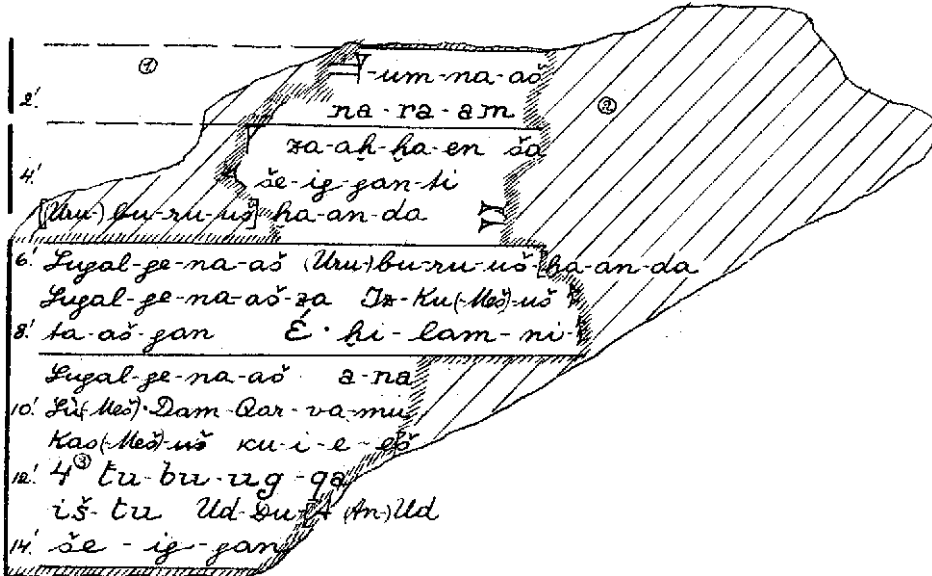 ①
-um-na-aš
2'. na-ra-am ②
za-aḫ-ḫa-en ša
4'. še-ig-gan-ti
[(Uru-)bu-ru-uš] ḫa-an-da
6'. Lugal-ge-na-aš (Uru-)bu-ru-uš-[ḫa-an-da
Lugal-ge-na-aš-za Iz-Ku(-Meš)-uš
8'. ta-aš-gan É·ḫi-lam-ni-
Lugal-ge-na-aš a-na
10'. Lù(Meš)·Dam-Qar-va-mu
Kas(-Meš)-uš ku-i-e-eš
12'. 4 ③ tu-bu-ug-qa
iš-tu Ud-Du-[A (An-)Ud
14'. še-ig-gan